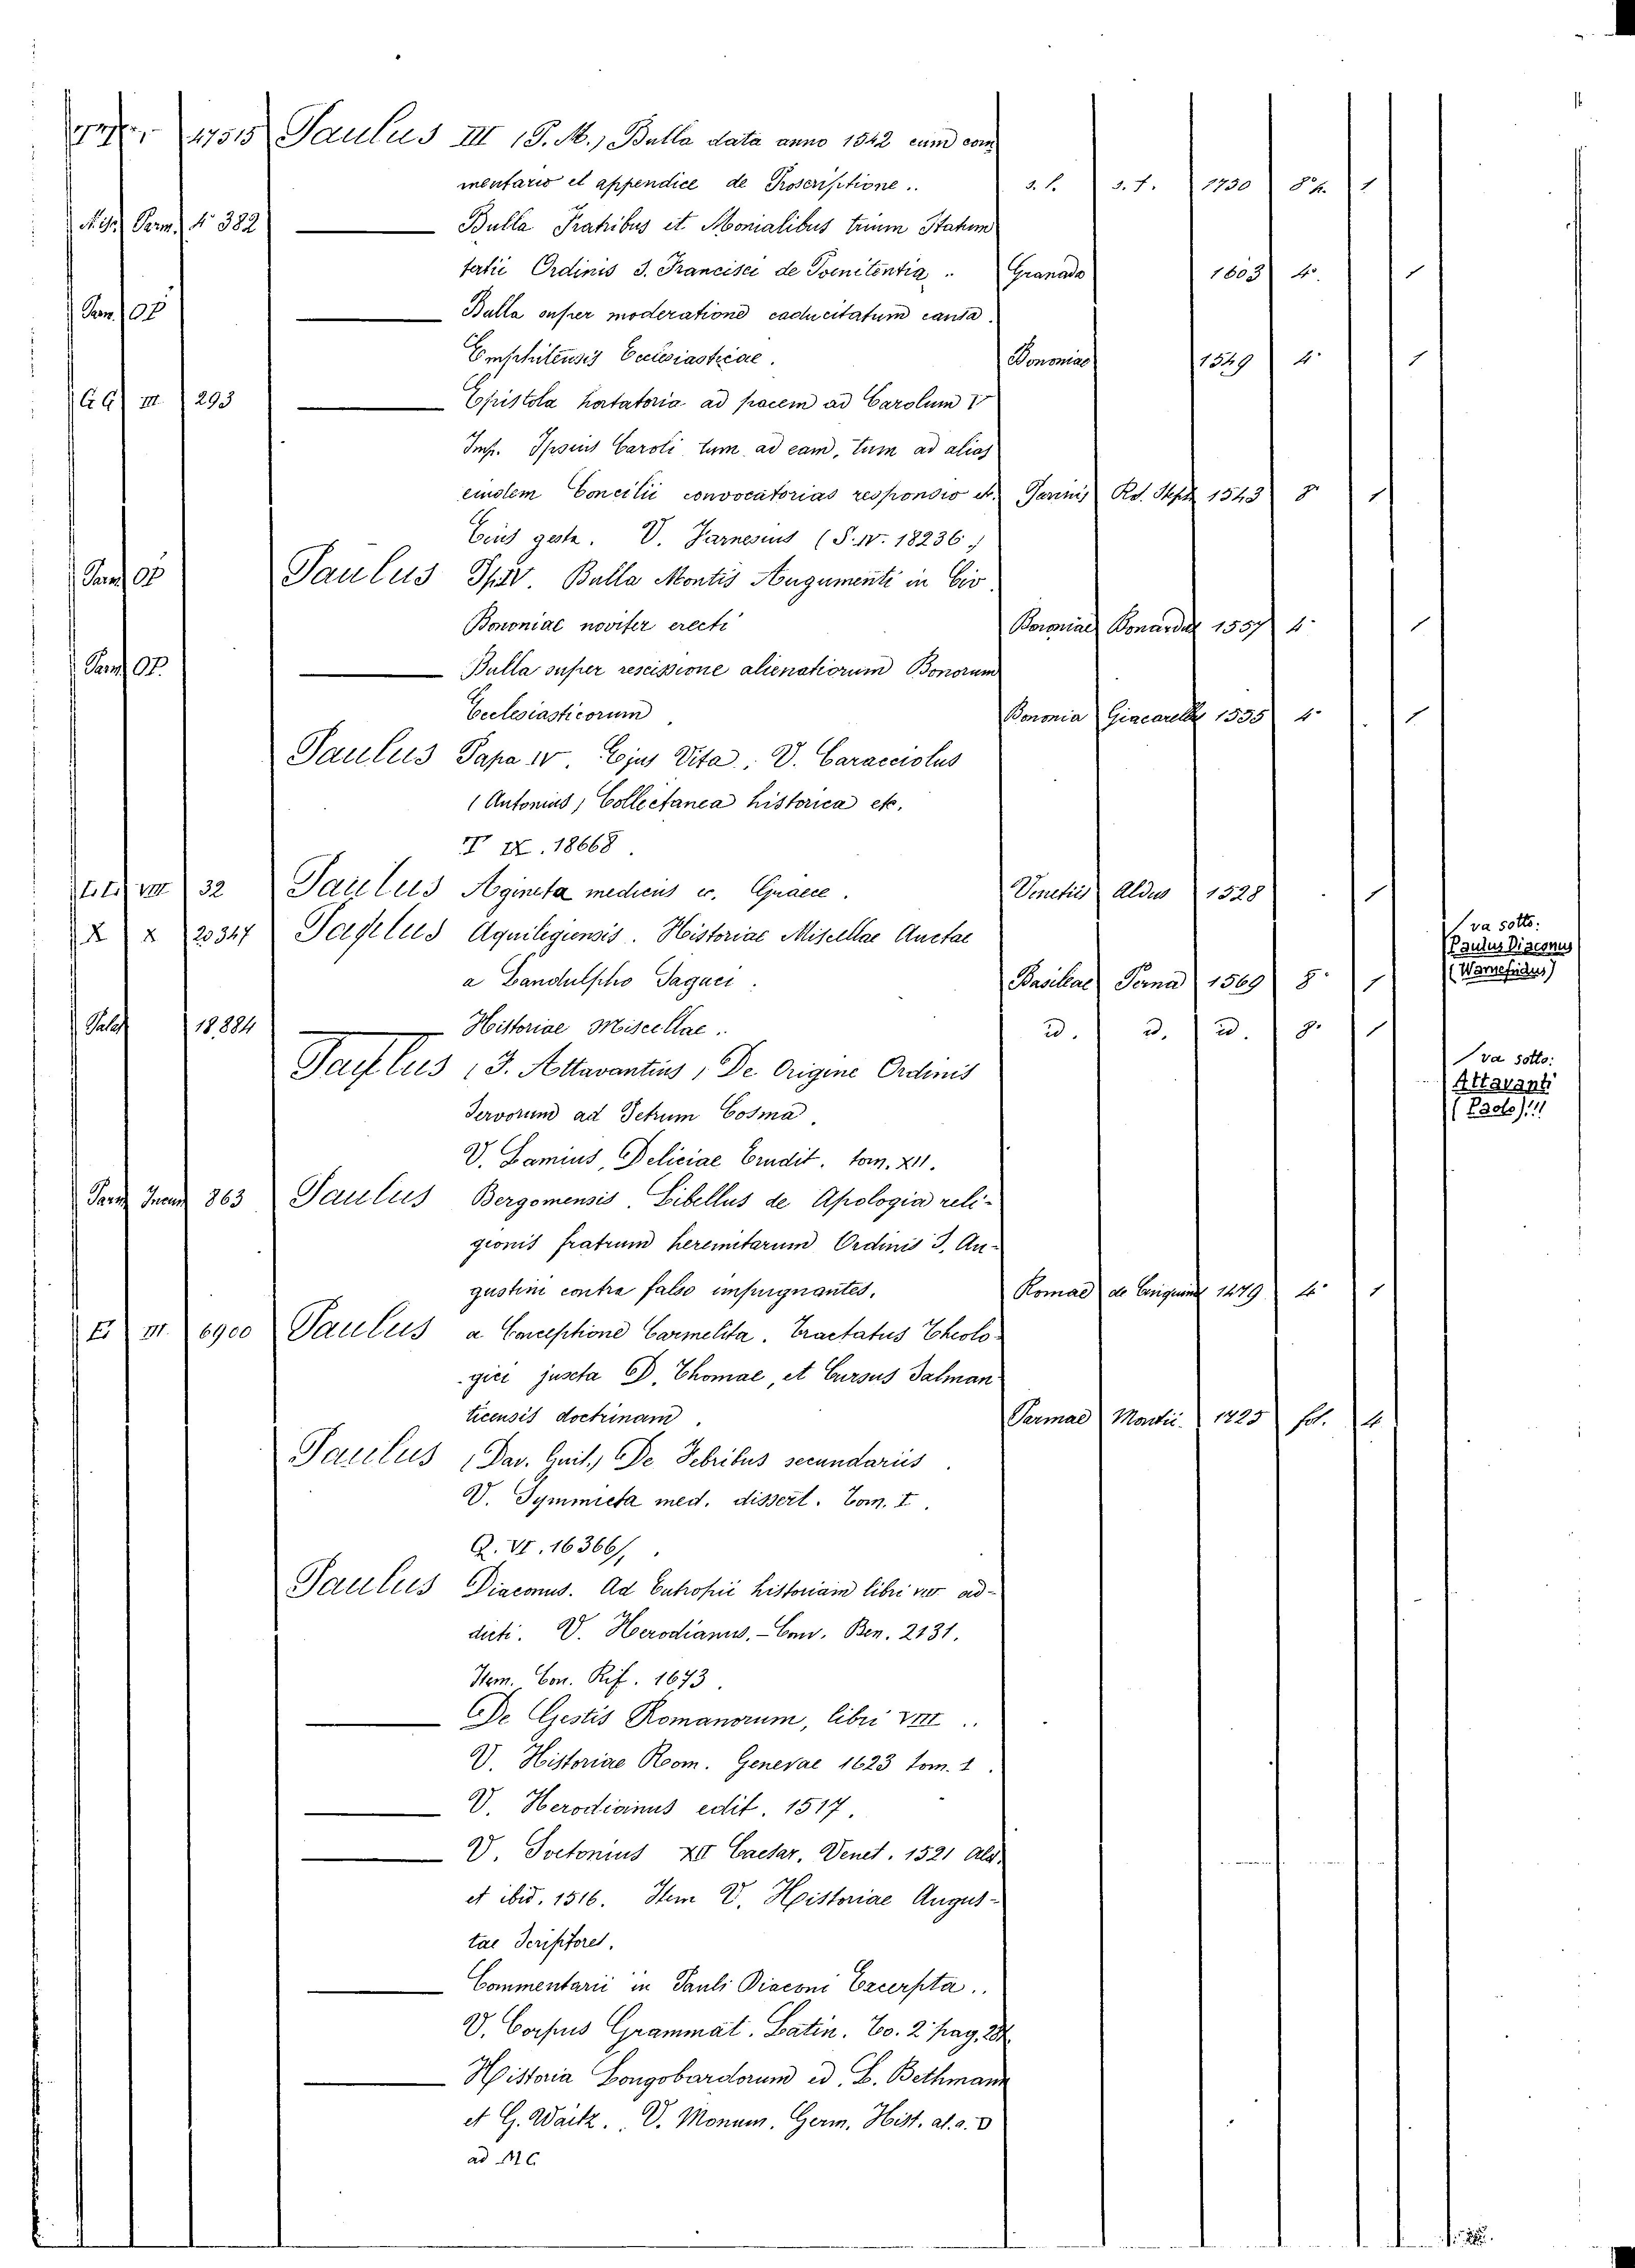 47515 Paulus III (P. M.) Bulla data anno 1542 cum com
mentario et appendice de Proscriptione.. s. l. s. t. 1730 8° 1
Misc. Parm. 4° 382 Bulla Fratribus et Monialibus trium Statum
tertii Ordinis S. Francisci de Poenitentia .. Granada 1603 4° 1
Parm. OP Bulla super moderatione caducitatum causa
Emphiteusis Ecclesiasticae. Bononiae 1549 4° 1
G G III 293 Epistola hortatoria ad pacem ad Carolum V
Imp. Ipsius Caroli tum ad eam, tum ad alias
eiusdem Concilii convocatorias responsio et. Parisiis Rob. Steph. 1543 8° 1
Eius gesta. V. Farnesius (S. IV. 18236.)
Parm. OP Paulus Papa IV. Bulla Montis Augumenti in Civ.
Bononiae noviter erecti Bononiae Bonardus 1557 4° 1
Parm. OP. Bulla super rescissione alienatiorum Bonorum
Ecclesiasticorum Bononia Giacarelli 1555 4° 1
Paulus Papa IV. Ejus Vita. V. Caracciolus
(Antonius) Collectanea historica etc.
T IX. 18668.
VIII 32 Paulus Agineta medicus ec. Graece. Venetiis Aldus 1528 1
X X 20347 Paulus Aquilegiensis. Historiae Miscellae Auctae
a Landulpho Sagaci. Basileae Perna 1569 8° 1
va sotto:
Paulus Diaconus
(Warnefridus)
Palat. 18,884 Historiae Miscellae.. id. id. id. 8° 1
Paulus (S. Attavantius) De Origine Ordinis
va sotto:
Attavanti
(Paolo)!!!
Servorum ad Petrum Cosma.
V. Lamius, Deliciae Erudit. tom. XII.
Parm. Incun. 863 Paulus Bergomensis. Libellus de Apologia reli-
gionis fratrum heremitarum Ordinis S. Au-
gustini contra falso impugnantes. Romae de 1479 4° 1
E III. 6900 Paulus a Conceptione Carmelita. Tractatus Theolo-
gici juxta D. Thomae, et Cursus Salman
ticensis doctrinam. Parmae Montii. 1725 fol. 4
Paulus (Dav. Guil.) De Febribus secundariis.
V. Symmicta med. dissert. Tom. I.
Q. VI. 16366/.
Paulus Diaconus. Ad Eutropii historiam libri VIII ad-
dicti. V. Herodianus. - Con. Ben. 2131.
Item. Con. Rif. 1673.
De Gestis Romanorum, libri VIII ..
V. Historiae Rom. Genevae 1623 tom. 1.
V. Herodianus edit. 1517.
V. Svetonius XII Caesar. Venet. 1521 Ald.
et ibid. 1516. Item V. Historiae Augus-
tae Scriptores.
Commentarii in Pauli Diaconi Excerpta..
V. Corpus Grammat. Latin. To. 2 pag.
Historia Longobardorum ed. L. Bethmann
et G. Waitz.. V. Monum. Germ. Hist. at. a. D
ad MC